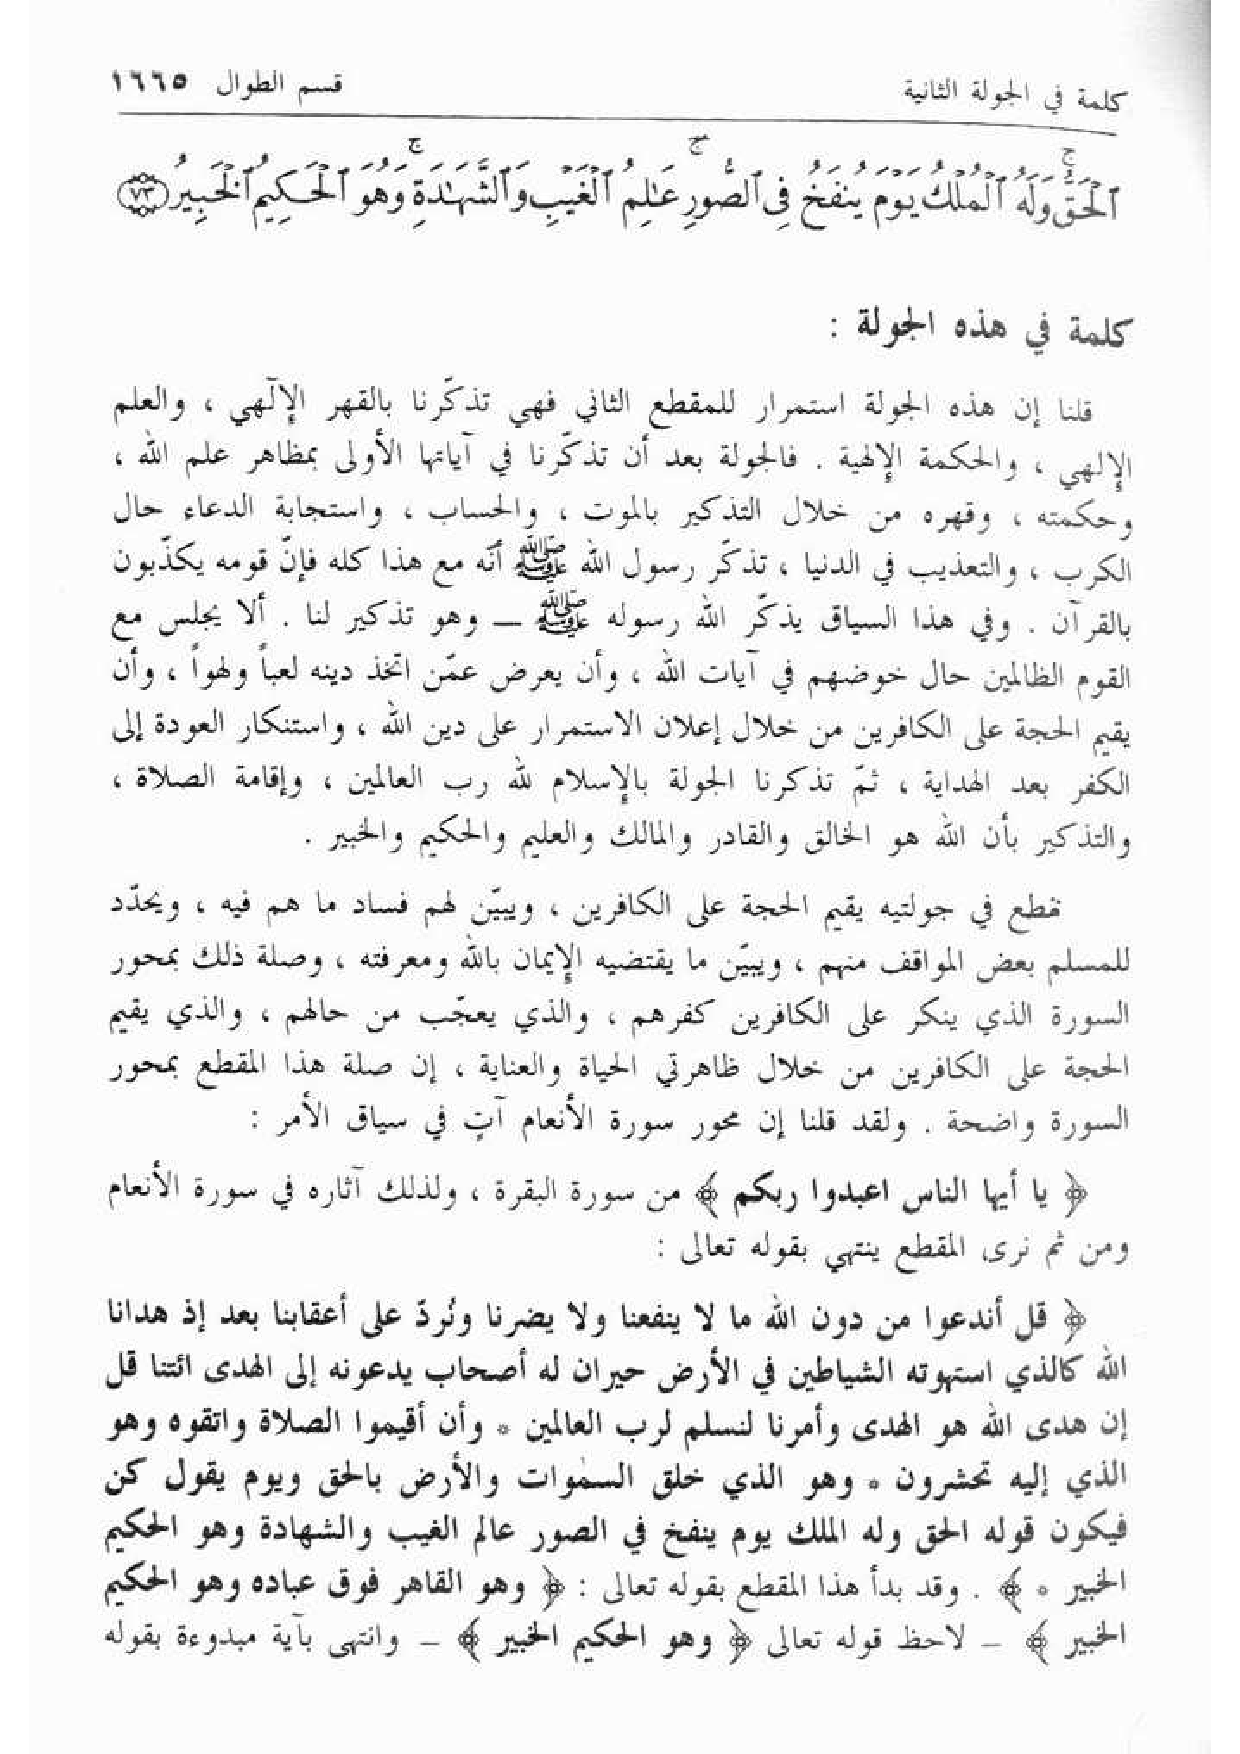 كلمة في الجولة الثانية
قسم الطوال ١٦٦٥
ٱلْحَقُّ وَلَهُ ٱلْمُلْكُ يَوْمَ يُنفَخُ فِى ٱلصُّورِ عَٰلِمُ ٱلْغَيْبِ وَٱلشَّهَٰدَةِ وَهُوَ ٱلْحَكِيمُ ٱلْخَبِيرُ ٧٣
كلمة في هذه الجولة :
قلنا إن هذه الجولة استمرار للمقطع الثاني فهي تذكّرنا بالقهر الإلٓهي ، والعلم
الإلهي ، والحكمة الإلهية . فالجولة بعد أن تذكّرنا في آياتها الأولى بمظاهر علم الله ،
وحكمته ، وقهره من خلال التذكير بالموت ، والحساب ، واستجابة الدعاء حال
الكرب ، والتعذيب في الدنيا ، تذكّر رسول الله ﷺ أنّه مع هذا كله فإنّ قومه يكذّبون
بالقرآن . وفي هذا السياق يذكّر الله رسوله ﷺ ــ وهو تذكير لنا . ألا يجلس مع
القوم الظالمين حال خوضهم في آيات الله ، وأن يعرض عمّن اتخذ دينه لعباً ولهواً ، وأن
يقيم الحجة على الكافرين من خلال إعلان الاستمرار على دين الله ، واستنكار العودة إلى
الكفر بعد الهداية ، ثمّ تذكرنا الجولة بالإسلام لله رب العالمين ، وإقامة الصلاة ،
والتذكير بأن الله هو الخالق والقادر والمالك والعليم والحكيم والخبير .
فمقطع في جولتيه يقيم الحجة على الكافرين ، ويبيّن لهم فساد ما هم فيه ، ويحدّد
للمسلم بعض المواقف منهم ، ويبيّن ما يقتضيه الإيمان بالله ومعرفته ، وصلة ذلك بمحور
السورة الذي ينكر على الكافرين كفرهم ، والذي يعجّب من حالهم ، والذي يقيم
الحجة على الكافرين من خلال ظاهرتي الحياة والعناية ، إن صلة هذا المقطع بمحور
السورة واضحة . ولقد قلنا إن محور سورة الأنعام آتٍ في سياق الأمر :
﴿ يا أيها الناس اعبدوا ربكم ﴾ من سورة البقرة ، ولذلك آثاره في سورة الأنعام
ومن ثم نرى المقطع ينتهي بقوله تعالى :
﴿ قل أندعوا من دون الله ما لا ينفعنا ولا يضرنا ونُردّ على أعقابنا بعد إذ هدانا
الله كالذي استهوته الشياطين في الأرض حيران له أصحاب يدعونه إلى الهدى ائتنا قل
إن هدى الله هو الهدى وأمرنا لنسلم لرب العالمين * وأن أقيموا الصلاة واتقوه وهو
الذي إليه تحشرون * وهو الذي خلق السمٰوات والأرض بالحق ويوم يقول كن
فيكون قوله الحق وله الملك يوم ينفخ في الصور عالم الغيب والشهادة وهو الحكيم
الخبير * ﴾ . وقد بدأ هذا المقطع بقوله تعالى : ﴿ وهو القاهر فوق عباده وهو الحكيم
الخبير ﴾ ــ لاحظ قوله تعالى ﴿ وهو الحكيم الخبير ﴾ ــ وانتهى بآية مبدوءة بقوله